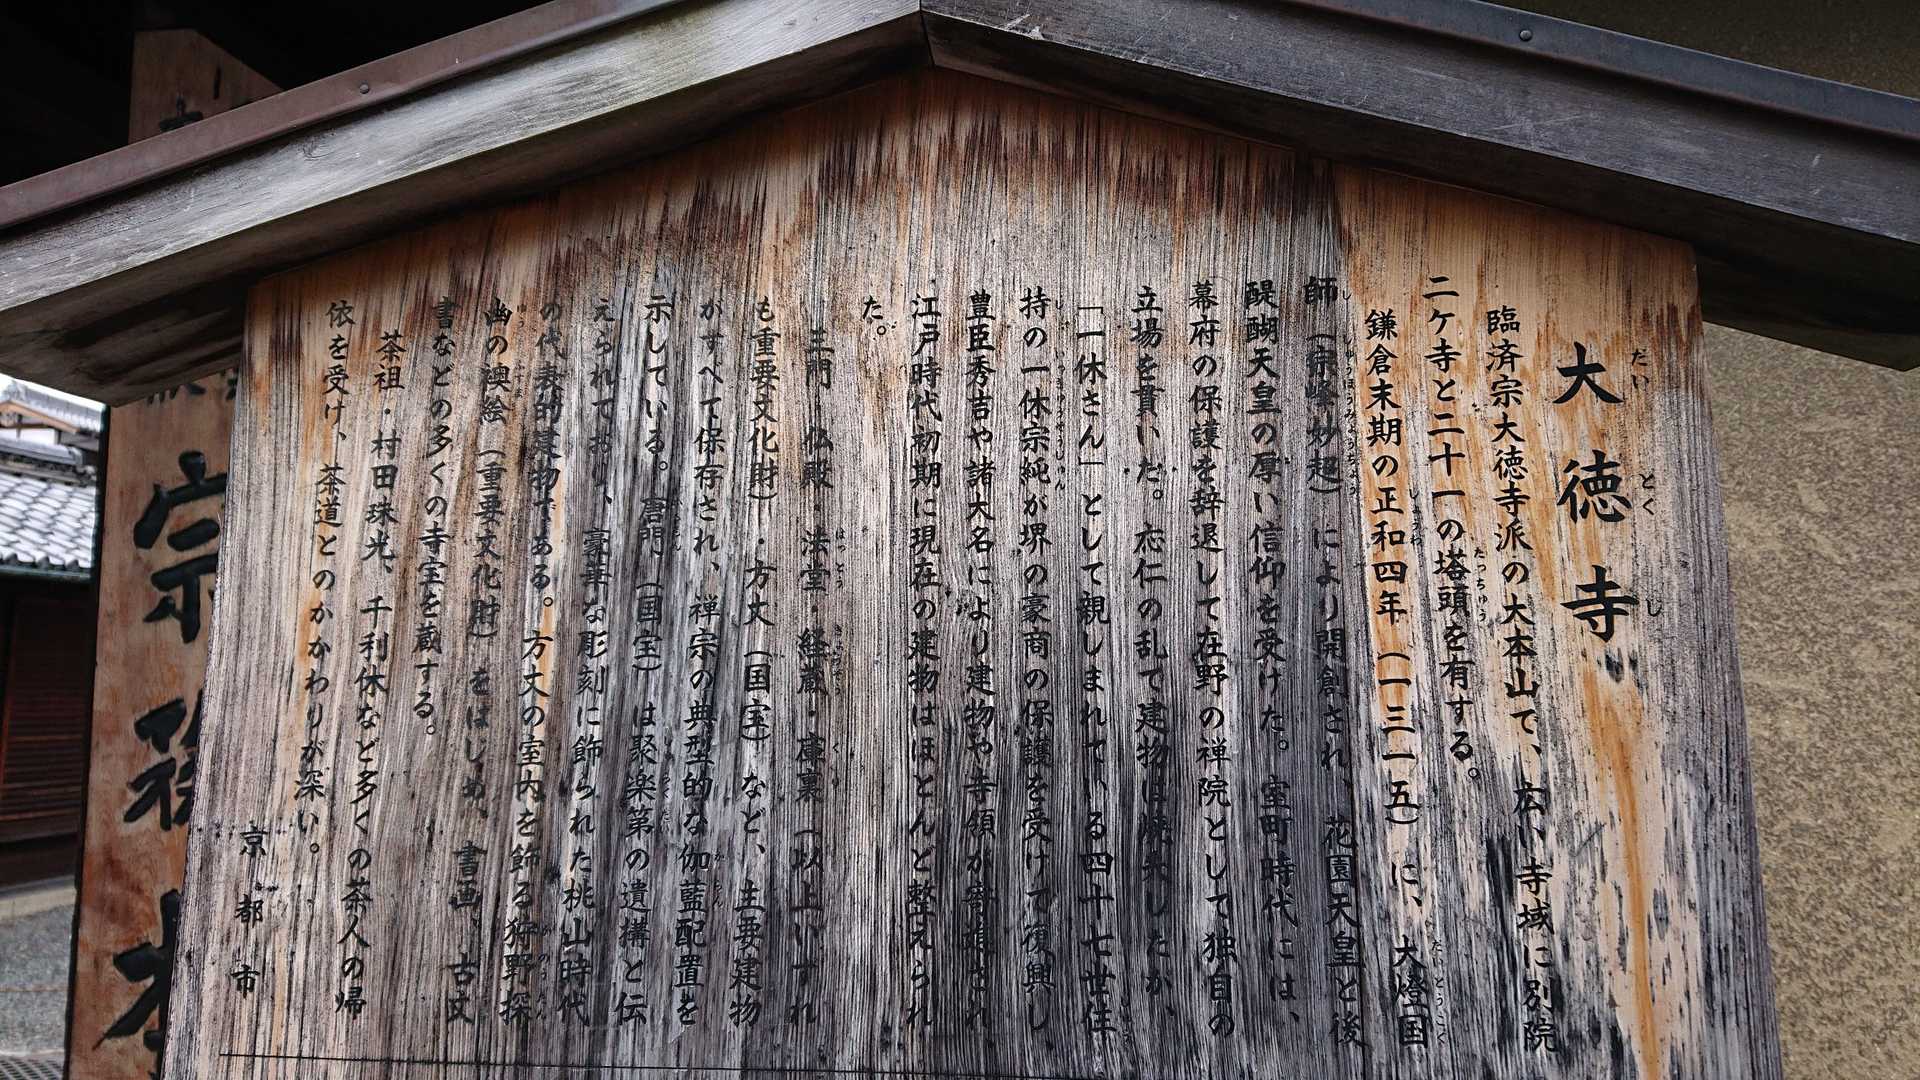 大徳寺
だいとくし
臨済宗大徳寺派の大本山で、広い寺域に別院
二ケ寺と二十一の塔頭を有する。
たっちゅう
鎌倉末期の正和四年(一三一五)に、大燈国
しょうわ
だいとうこく
師(宗峰妙超)により開創され、花園天皇と後
し しゅうほうみょうちょう
醍醐天皇の厚い信仰を受けた。室町時代には、
幕府の保護を辞退して在野の禅院として独自の
立場を貫いた。応仁の乱で建物は焼失したが、
「一休さん」として親しまれている四十七世住
持の一休宗純が堺の豪商の保護を受けて復興し、
豊臣秀吉や諸大名により建物や寺領が寄進され、
江戸時代初期に現在の建物はほとんど整えられ
た。
三門・仏殿・法堂・経蔵・庫裏(以上いずれ
はっとう
きょうぞう
くり
も重要文化財)・方丈(国宝)など、主要建物
がすべて保存され、禅宗の典型的な伽藍配置を
がらん
示している。唐門(国宝)は聚楽第の遺構と伝
えられており、豪華な彫刻に飾られた桃山時代
の代表的建物である。方丈の室内を飾る狩野探
かのうたん
幽の襖絵(重要文化財)をはじめ、書画、古文
ゆう ふすま
書などの多くの寺宝を蔵する。
茶祖・村田珠光、千利休など多くの茶人の帰
依を受け、茶道とのかかわりが深い。
京都市
宗務本